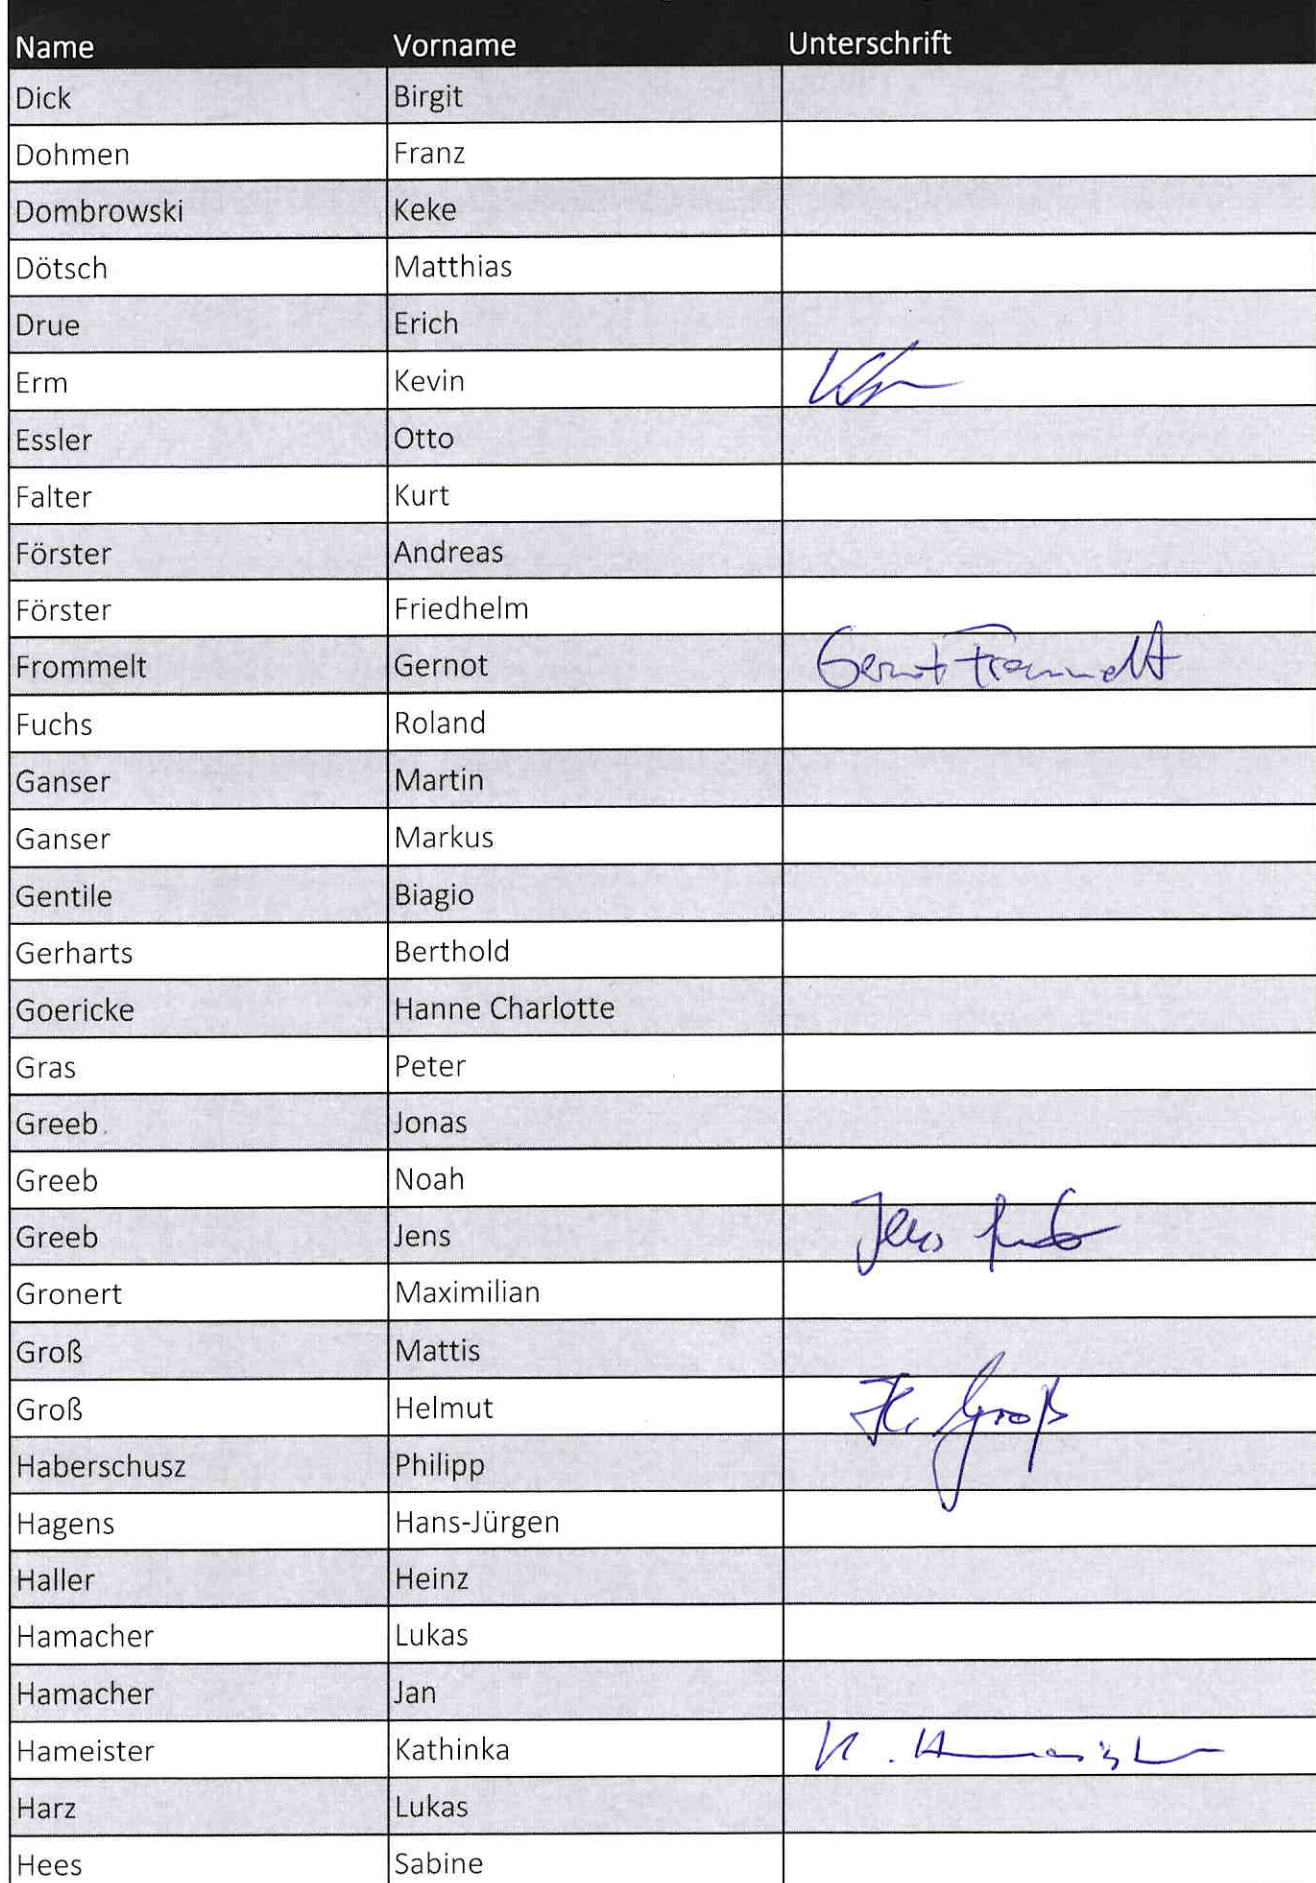 Name Vorname Unterschrift
Dick Birgit
Dohmen Franz
Dombrowski Keke
Dötsch Matthias
Drue Erich
Erm Kevin
Essler Otto
Falter Kurt
Förster Andreas
Förster Friedhelm
Frommelt Gernot Gernot Frommelt
Fuchs Roland
Ganser Martin
Ganser Markus
Gentile Biagio
Gerharts Berthold
Goericke Hanne Charlotte
Gras Peter
Greeb Jonas
Greeb Noah
Greeb Jens Jens
Gronert Maximilian
Groß Mattis
Groß Helmut H. Groß
Haberschusz Philipp
Hagens Hans-Jürgen
Haller Heinz
Hamacher Lukas
Hamacher Jan
Hameister Kathinka K. Hameister
Harz Lukas
Hees Sabine